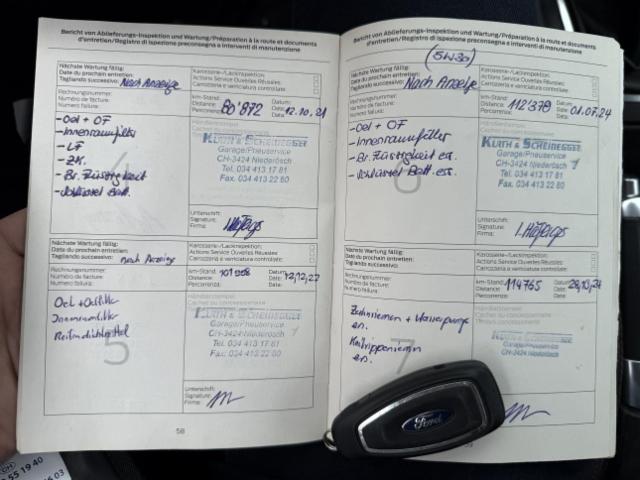 Bericht von Ablieferungs-Inspektion und Wartung/Préparation à la route et documents
d'entretien/Registro di ispezione preconsegna e interventi di manutenzione
Nächste Wartung fällig:
Date du prochain entretien:
Tagliando successivo: Nach Anzeige
Karosserie-/Lackinspektion:
Actions Service Ouvelles Réussies:
Carrozzeria e verniciatura controllate:
Rechnungsnummer:
Numéro de facture:
Numero fattura:
km-Stand:
Distance: 80'872
Percorrenza:
Datum:
Date: 12.10.21
Data:
- Oel + OF
- Innenraumfilter
- LF
- ZK.
- Br. Flüssigkeit
- Schlüssel Batt.
KURTH & SCHEIDEGGER
Garage/Pneuservice
CH-3424 Niederösch
Tel. 034 413 17 81
Fax. 034 413 22 80
Unterschrift:
Signature:
Firma:
4
Nächste Wartung fällig:
Date du prochain entretien:
Tagliando successivo: nach Anzeige
Karosserie-/Lackinspektion:
Actions Service Ouvelles Réussies:
Carrozzeria e verniciatura controllate:
Rechnungsnummer:
Numéro de facture:
Numero fattura:
km-Stand:
Distance:
Percorrenza:
Datum:
Oel + Oelfilter
Innenraumfilter
KURTH & SCHEIDEGGER
Garage/Pneuservice
CH-3424 Niederösch
Tel. 034 413 17 81
Fax. 034 413 22 80
Unterschrift:
Signature:
Firma:
5
58
Bericht von Ablieferungs-Inspektion und Wartung/Préparation à la route et documents
d'entretien/Registro di ispezione preconsegna e interventi di manutenzione
(5W30)
Nächste Wartung fällig:
Date du prochain entretien:
Tagliando successivo: Nach Anzeige
Karosserie-/Lackinspektion:
Actions Service Ouvelles Réussies:
Carrozzeria e verniciatura controllate:
Rechnungsnummer:
Numéro de facture:
Numero fattura:
km-Stand:
Distance: 112'378
Percorrenza:
Datum:
Date: 01.07.24
Data:
- Oel + OF
- Innenraumfilter
- Br. Flüssigkeit er.
- Schlüssel Batt. ers.
KURTH & SCHEIDEGGER
Garage/Pneuservice
CH-3424 Niederösch
Tel. 034 413 17 81
Fax. 034 413 22 80
Unterschrift:
Signature:
Firma:
6
Nächste Wartung fällig:
Date du prochain entretien:
Tagliando successivo:
Karosserie-/Lackinspektion:
Actions Service Ouvelles Réussies:
Carrozzeria e verniciatura controllate:
Rechnungsnummer:
Numéro de facture:
Numero fattura:
km-Stand:
Distance: 114765
Percorrenza:
Datum:
Date: 28,10,24
Data:
Zahnriemen + Wasserpumpe
en.
Keilrippenriemen
en.
KURTH & SCHEIDEGGER
Garage/Pneuservice
CH-3424 Niederösch
7
Ford